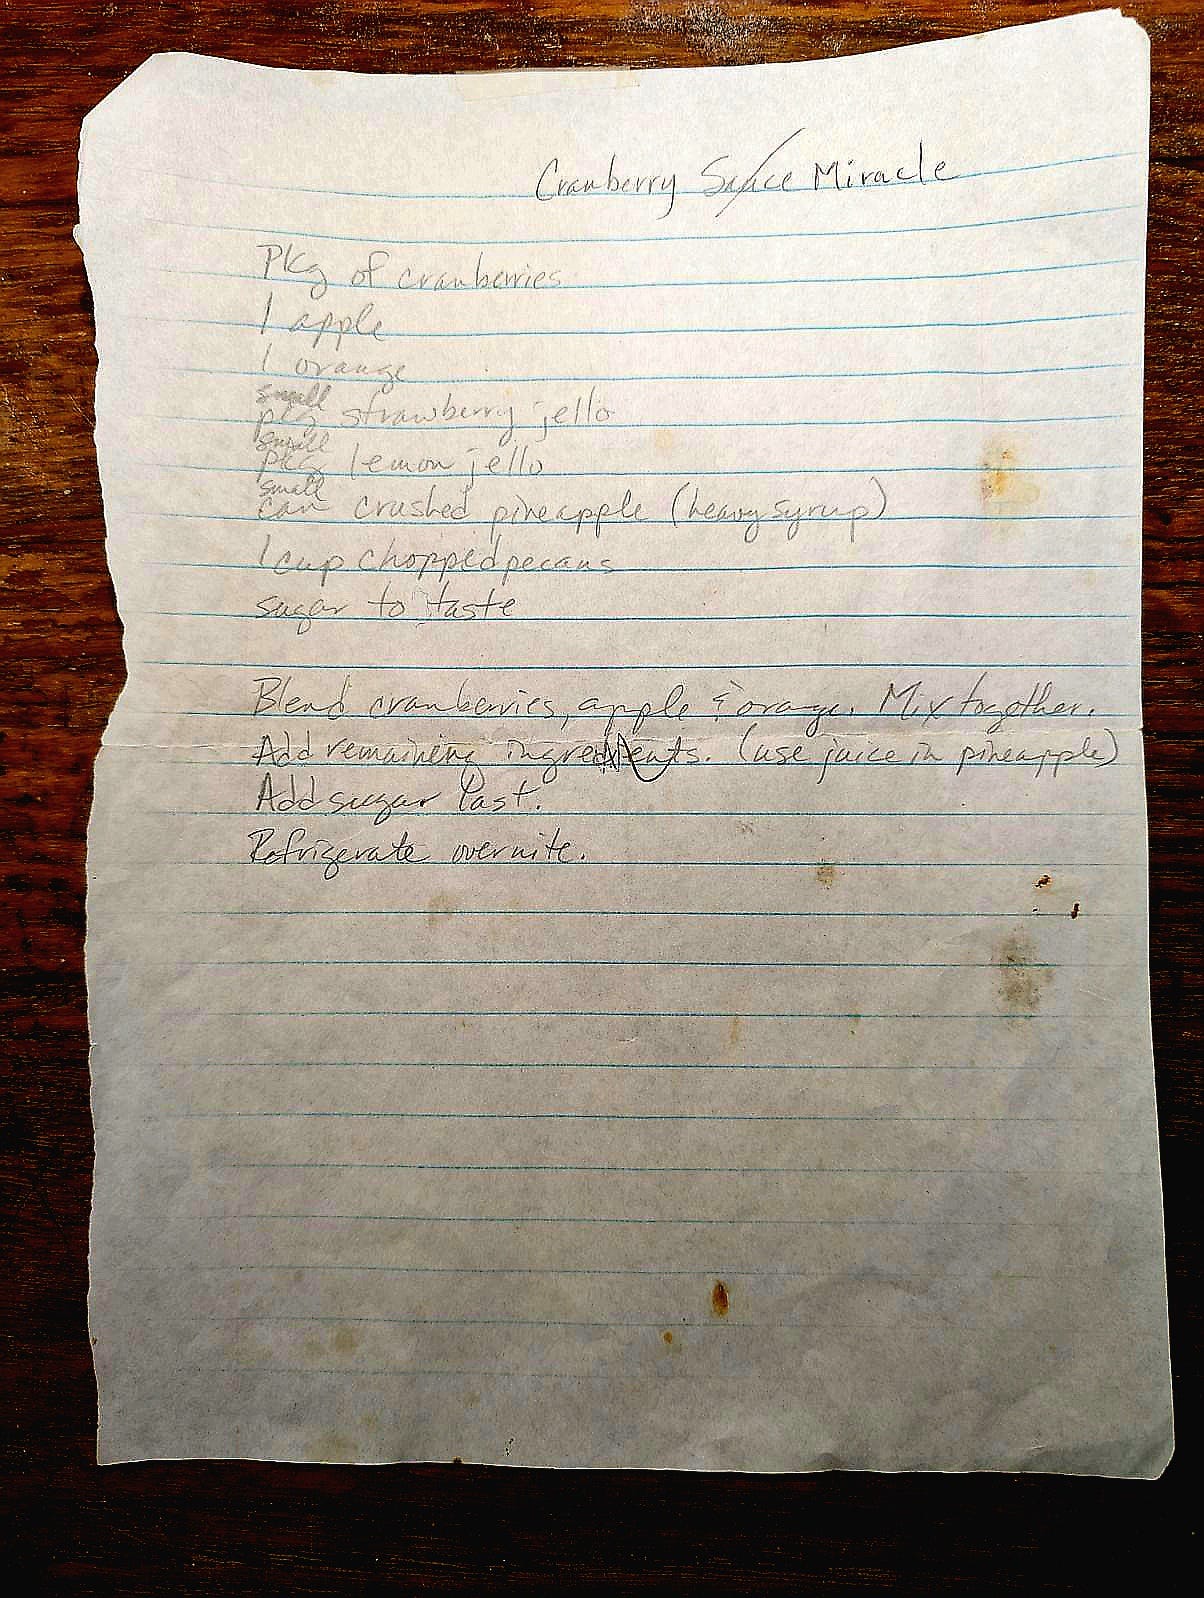 Cranberry Sauce Miracle
Pkg of cranberries
1 apple
1 orange
small
pkg strawberry jello
small
pkg lemon jello
small
can crushed pineapple (heavy syrup)
1 cup chopped pecans
sugar to taste
Blend cranberries, apple & orange. Mix together.
Add remaining ingredients. (use juice in pineapple)
Add sugar last.
Refrigerate overnite.